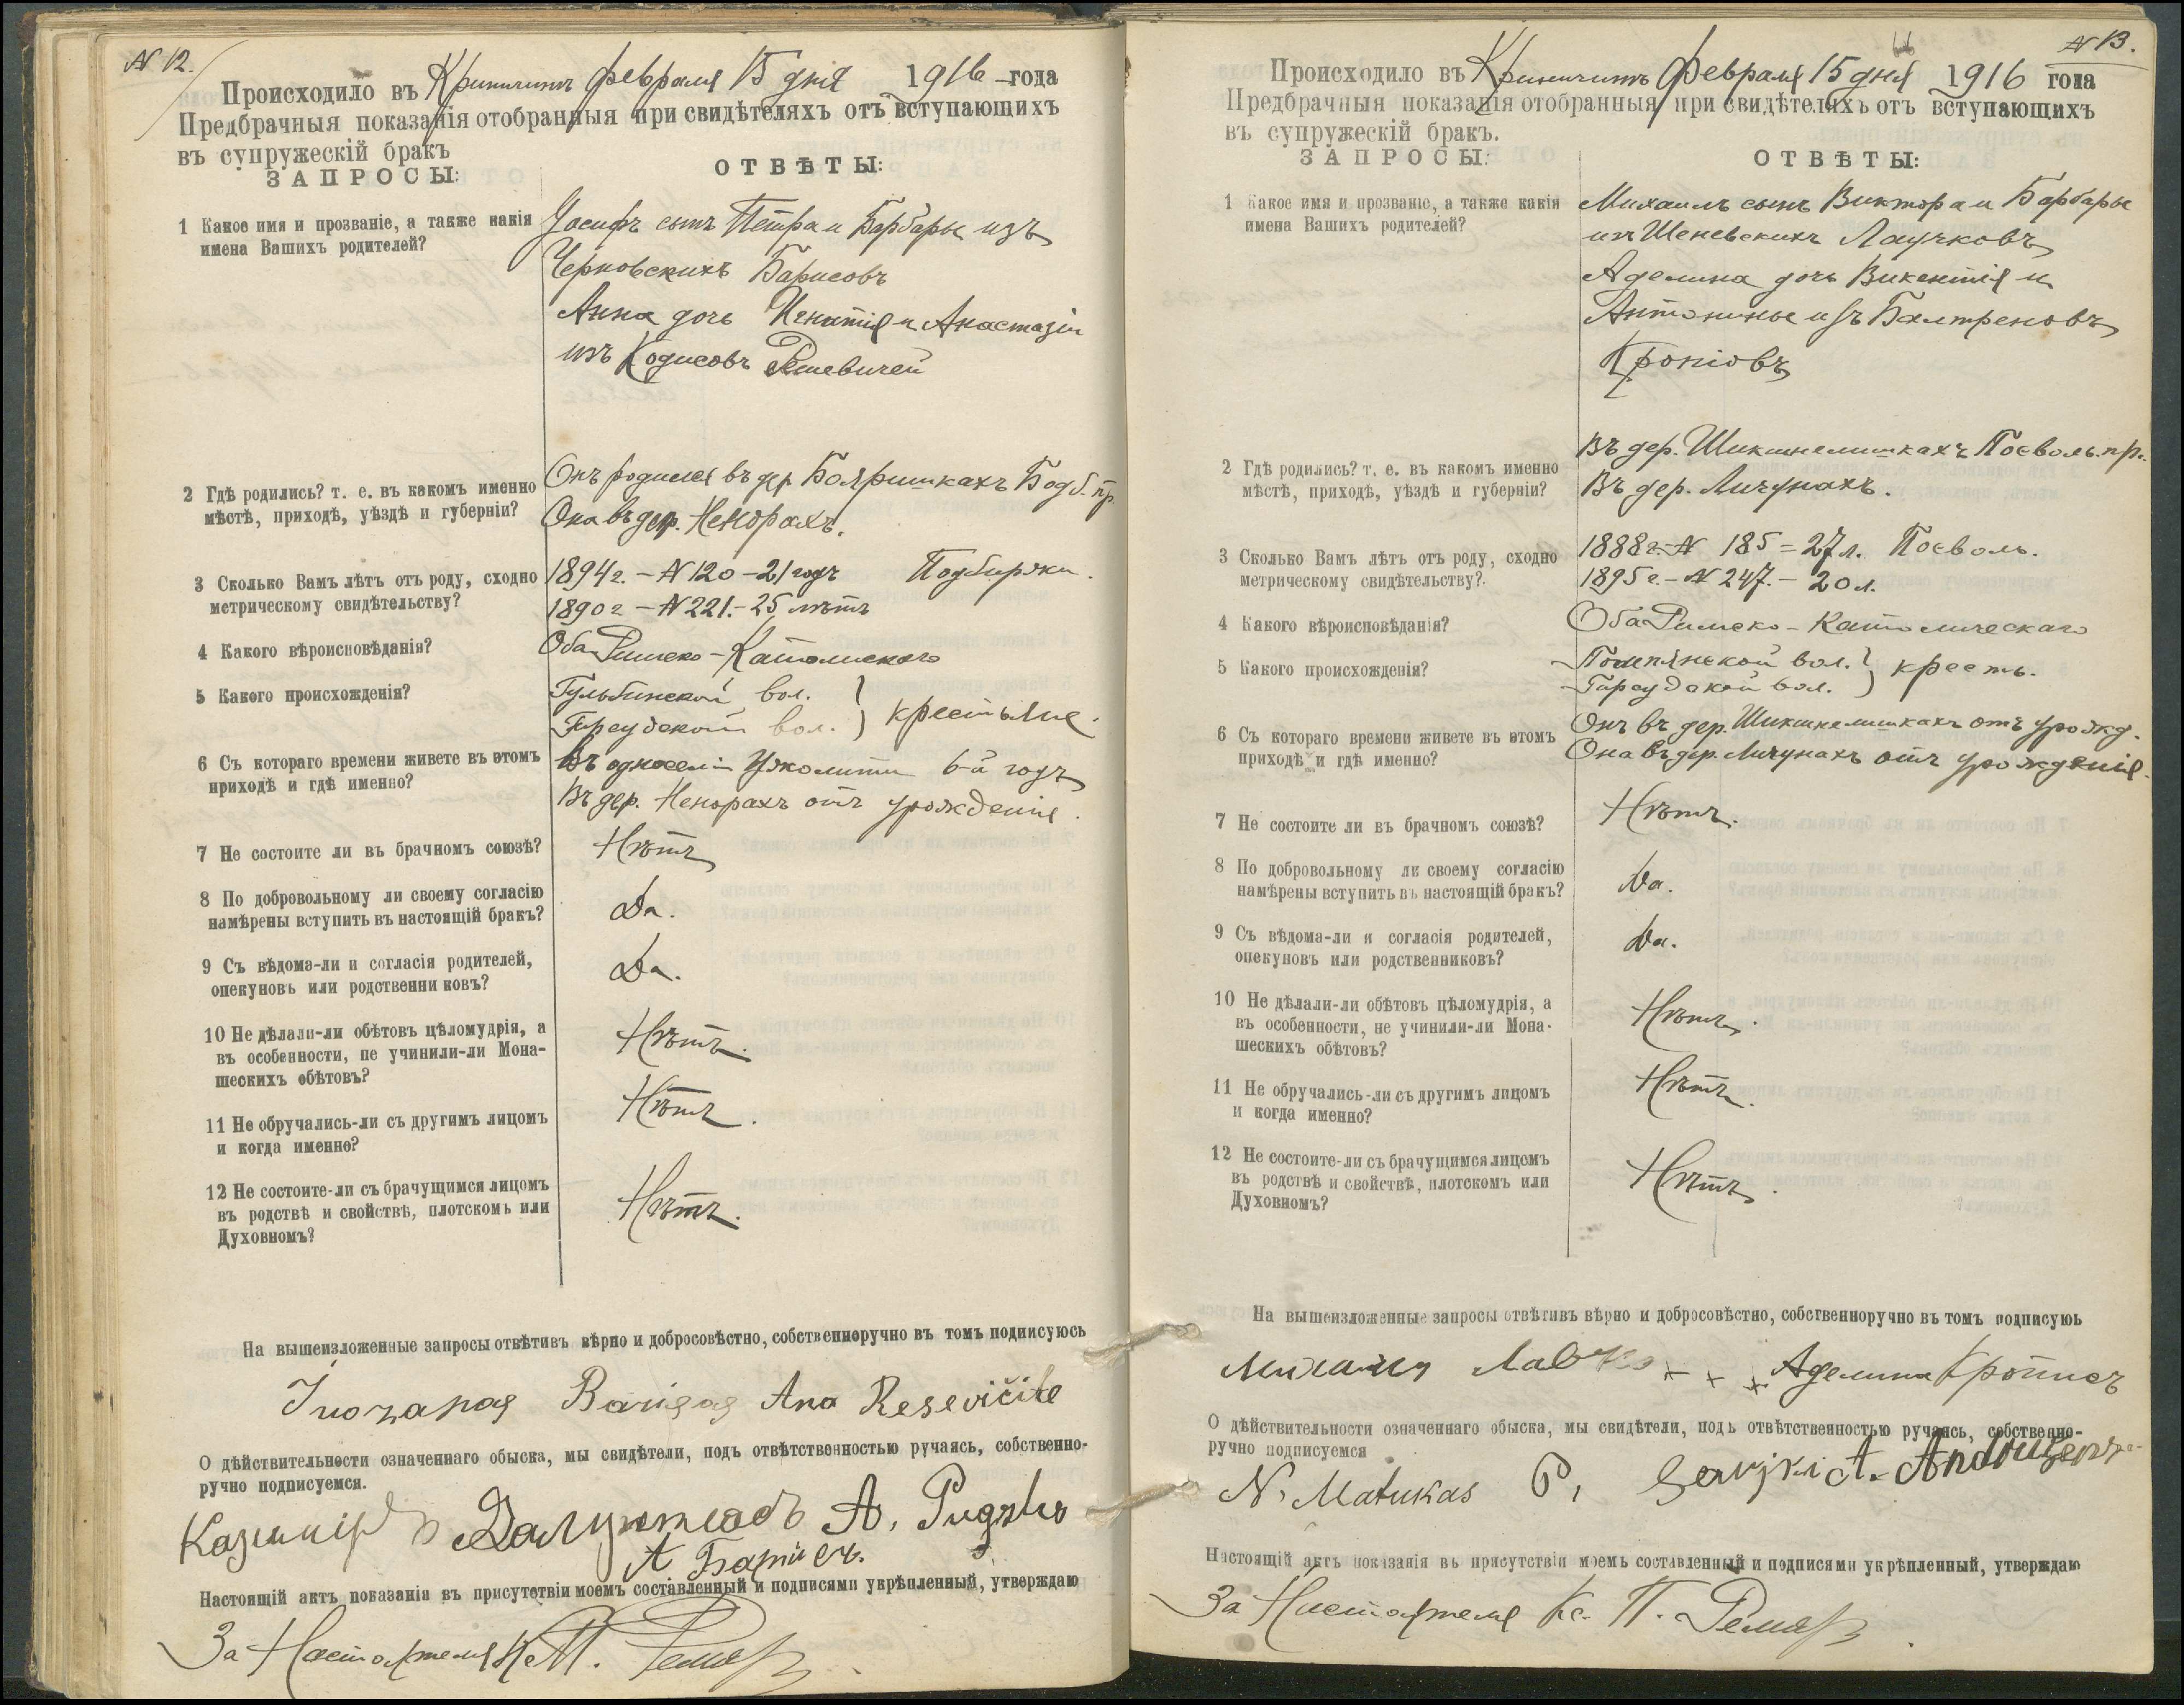 N 12.
Происходило въ Криничинъ Февраля 15 дня 1916 года
Предбрачныя показанія отобранныя при свидѣтеляхъ отъ вступающихъ
въ супружескій бракъ
ЗАПРОСЫ: ОТВѢТЫ:
1 Какое имя и прозваніе, а также какія
имена Вашихъ родителей?
Іосифъ сынъ Петра и Барбары изъ
Черновскихъ Барисовъ
Анна дочь Игнатія и Анастазіи
изъ Кодисовъ Решевичей
2 Гдѣ родились? т. е. въ какомъ именно
мѣстѣ, приходѣ, уѣздѣ и губерніи?
Онъ родился въ дер. Бояришкахъ Подб. пр.
Она въ дер. Ненорахъ.
3 Сколько Вамъ лѣтъ отъ роду, сходно
метрическому свидѣтельству?
1894 г. – N 120 – 21 годъ Подбиржи.
1890 г – N 221. – 25 лѣтъ
4 Какого вѣроисповѣданія?
Оба Римско-Католискаго
5 Какого происхожденія?
Гульбинской вол.
Гирсудской вол. } крестьяне.
6 Съ котораго времени живете въ этомъ
приходѣ и гдѣ именно?
Въ односеліи 6-й годъ
Въ дер. Ненорахъ отъ урожденія.
7 Не состоите ли въ брачномъ союзѣ?
Нѣтъ
8 По добровольному ли своему согласію
намѣрены вступить въ настоящій бракъ?
Да.
9 Съ вѣдома-ли и согласія родителей,
опекуновъ или родственни ковъ?
Да.
10 Не дѣлали-ли обѣтовъ цѣломудрія, а
въ особенности, не учинили-ли Мона-
шескихъ обѣтовъ?
Нѣтъ.
11 Не обручались-ли съ другимъ лицомъ
и когда именно?
Нѣтъ.
12 Не состоите-ли съ брачущимся лицомъ
въ родствѣ и свойствѣ, плотскомъ или
Духовномъ?
Нѣтъ.
На вышеизложенные запросы отвѣтивъ вѣрно и добросовѣстно, собственноручно въ томъ подписуюсь
Ana Resevičite
О дѣйствительности означеннаго обыска, мы свидѣтели, подъ отвѣтственностью ручаясь, собственно-
ручно подписуемся.
Казимір A.
А
Настоящій актъ показанія въ присутствіи моемъ составленный и подписями укрѣпленный, утверждаю
За Настоятеля Кс. П. Ремар
N 13.
Происходило въ Криничинъ Февраля 15 дня 1916 года
Предбрачныя показанія отобранныя при свидѣтеляхъ отъ вступающихъ
въ супружескій бракъ.
ЗАПРОСЫ: ОТВѢТЫ:
1 Какое имя и прозваніе, а также какія
имена Вашихъ родителей?
Михаилъ сынъ Виктора и Барбары
изъ Шеневскихъ Лаучковъ
Аделина дочь Викентія и
Антонины изъ Балтреновъ
Кропіовъ
2 Гдѣ родились? т. е. въ какомъ именно
мѣстѣ, приходѣ, уѣздѣ и губерніи?
Въ дер. Шикшнелишкахъ Поєволь. пр.
Въ дер. Личунахъ.
3 Сколько Вамъ лѣтъ отъ роду, сходно
метрическому свидѣтельству?
1888 г. N 185 = 27 л. Поєволь.
1895 г. – N 247. – 20 л.
4 Какого вѣроисповѣданія?
Оба Римско-Католическаго
5 Какого происхожденія?
вол.
Гирсудской вол. } кресть.
6 Съ котораго времени живете въ этомъ
приходѣ и гдѣ именно?
Онъ въ дер. Шикшнелишкахъ отъ урожд.
Она въ дер. Личунахъ отъ урожденія.
7 Не состоите ли въ брачномъ союзѣ?
Нѣтъ.
8 По добровольному ли своему согласію
намѣрены вступить въ настоящій бракъ?
Да.
9 Съ вѣдома-ли и согласія родителей,
опекуновъ или родственниковъ?
Да.
10 Не дѣлали-ли обѣтовъ цѣломудрія, а
въ особенности, не учинили-ли Мона-
шескихъ обѣтовъ?
Нѣтъ.
11 Не обручались-ли съ другимъ лицомъ
и когда именно?
Нѣтъ.
12 Не состоите-ли съ брачущимся лицомъ
въ родствѣ и свойствѣ, плотскомъ или
Духовномъ?
Нѣтъ.
На вышеизложенные запросы отвѣтивъ вѣрно и добросовѣстно, собственноручно въ томъ подписуюь
+ + + Аделина
О дѣйствительности означеннаго обыска, мы свидѣтели, подъ отвѣтственностью ручаясь, собственно-
ручно подписуемся
N. Matukas P. A.
Настоящій актъ показанія въ присутствіи моемъ составленный и подписями укрѣпленный, утверждаю
За Настоятеля Кс. П. Ремар